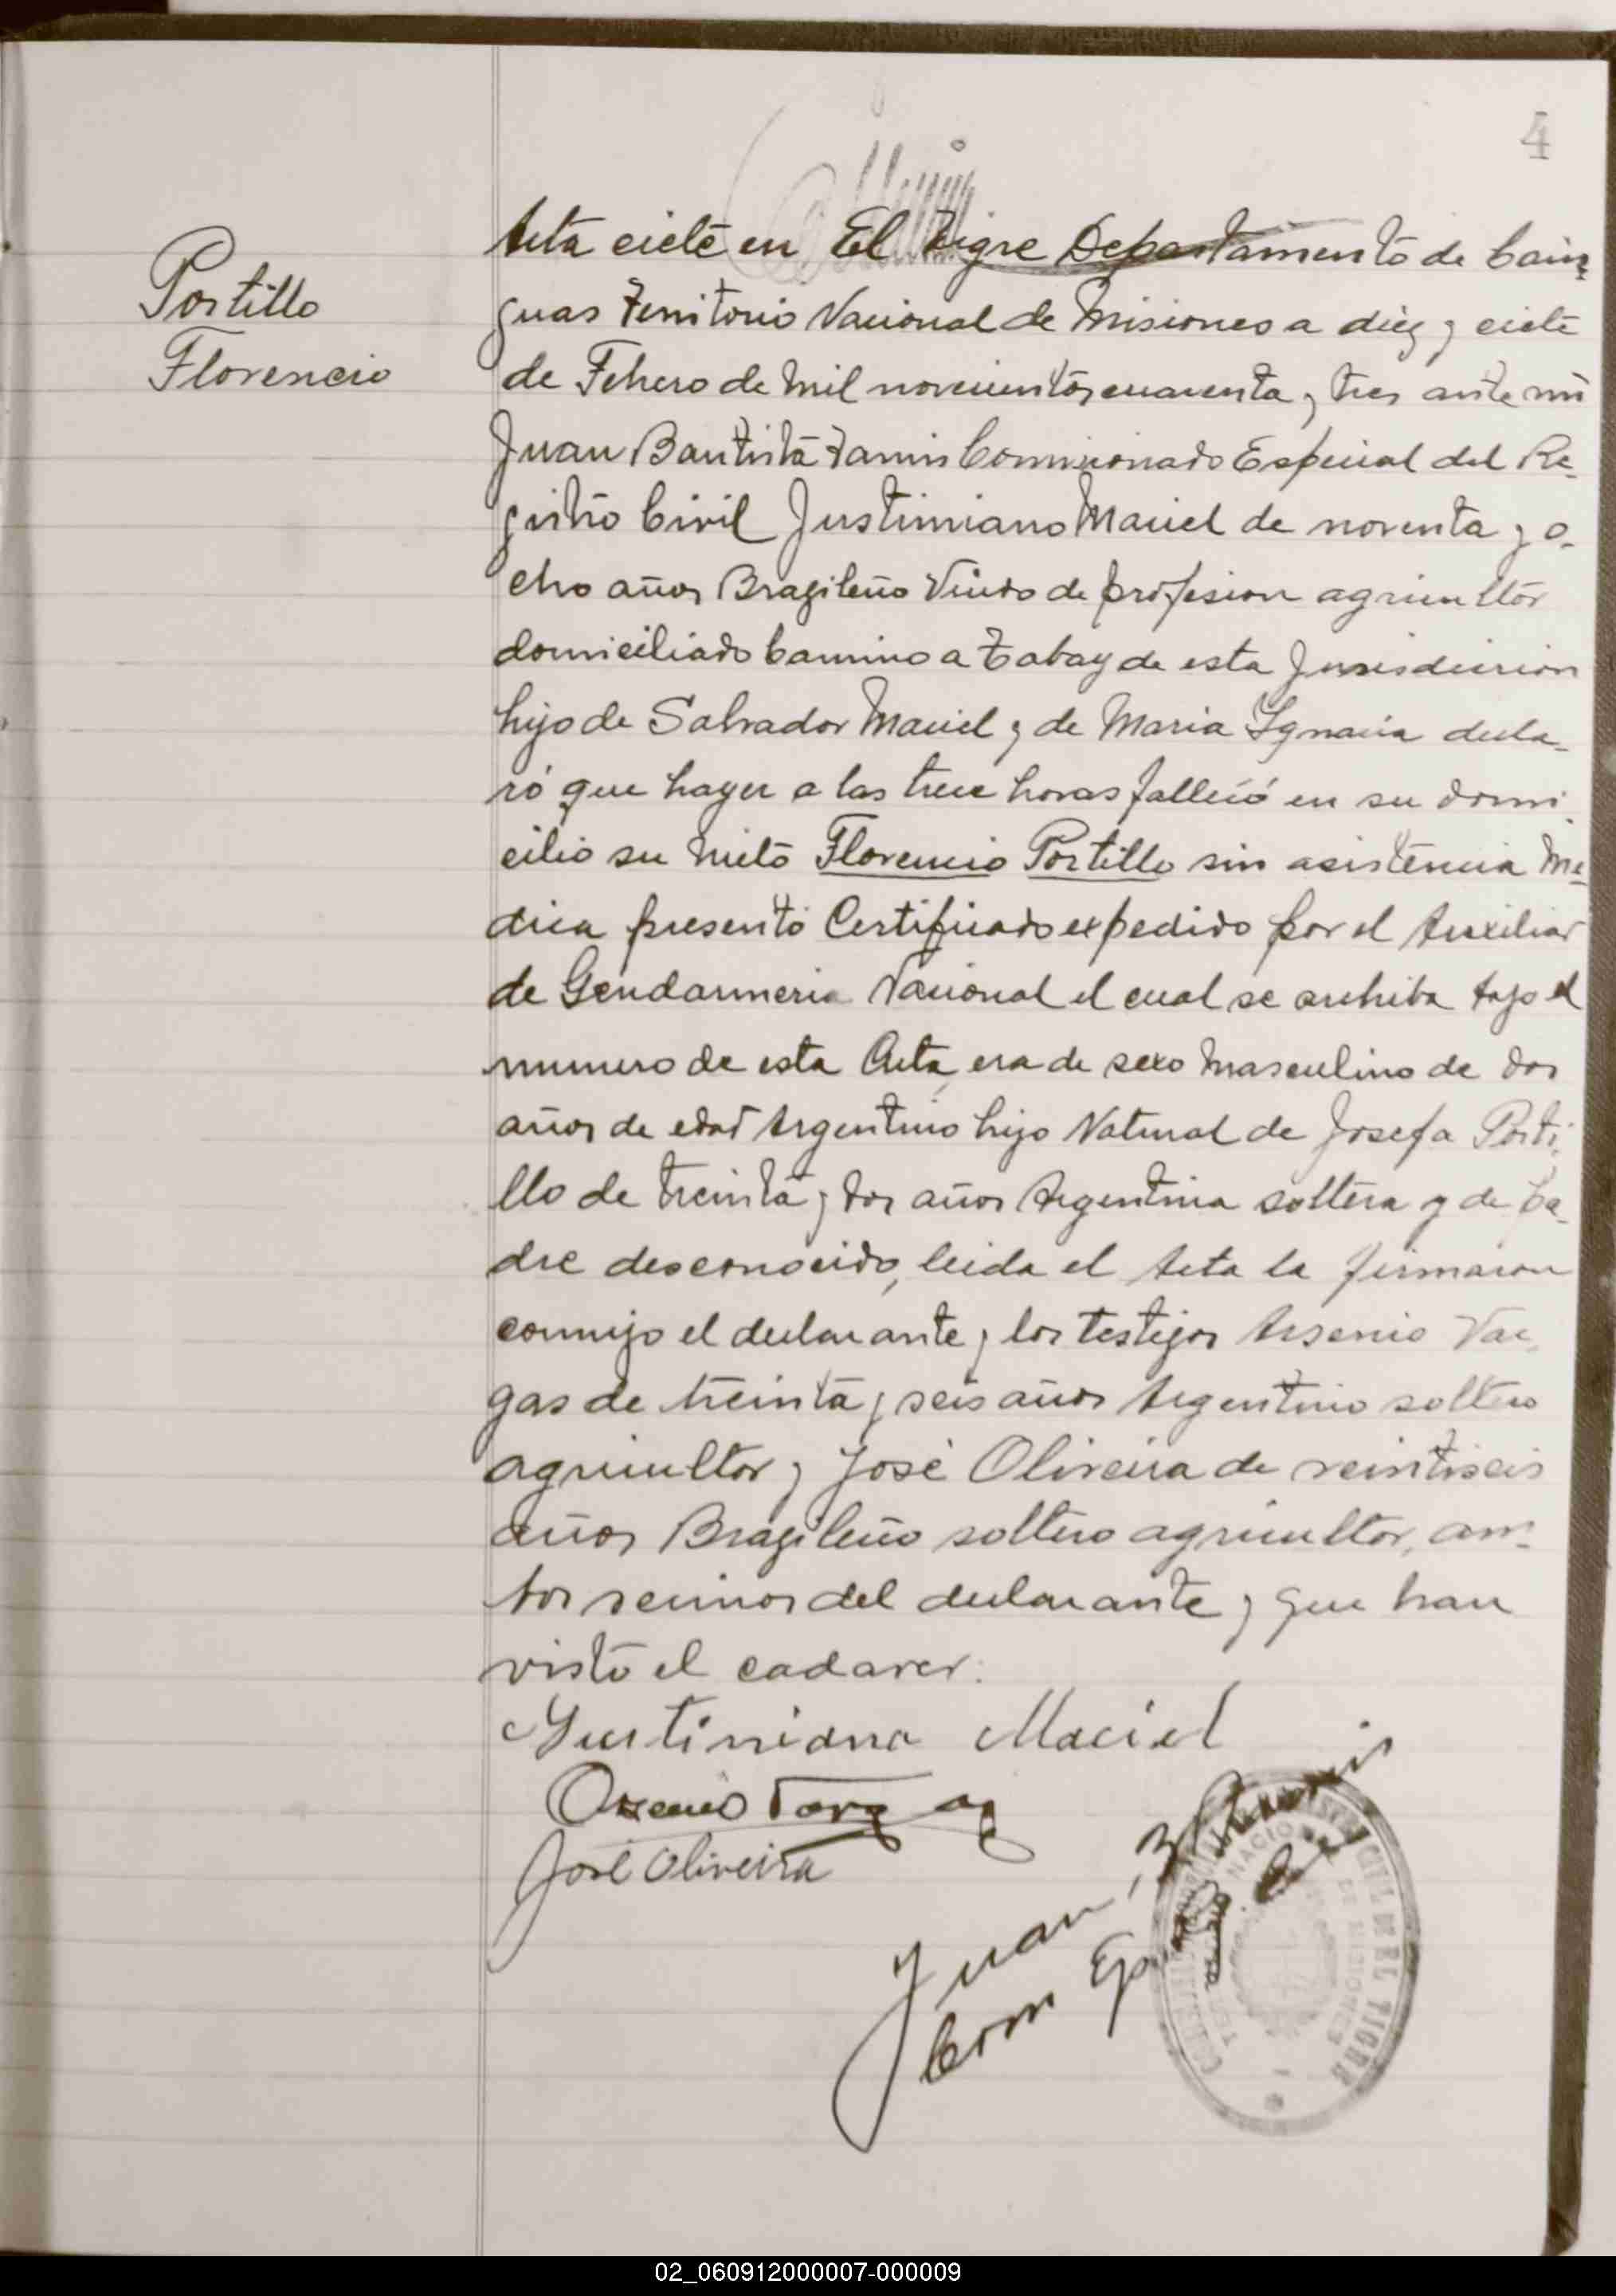 4
Portillo
Florencio
Acta ciete en El Tigre Departamento de Cain-
guas Territorio Nacional de Misiones a diez y ciete
de Febrero de mil novecientos cuarenta y tres ante mi
Juan Bautista Comisionado Especial del Re-
gistro Civil Justiniano Maciel de noventa y o-
cho años Brazileño Viudo de profesion agricultor
domiciliado Camino a Tabay de esta Jurisdiccion
hijo de Salvador Maciel y de Maria Ygnacia decla-
ró que hayer a las trece horas falleció en su domi-
cilio su nieto Florencio Portillo sin asistencia Me-
dica presentó Certificado expedido por el Auxiliar
de Gendarmeria Nacional el cual se archiba bajo el
numero de esta Acta, era de sexo masculino de dos
años de edad Argentino hijo Natural de Josefa Porti-
llo de treinta y dos años Argentina soltera y de Pa-
dre desconocido, leida el Acta la firmaron
conmigo el declarante y los testigos Arsenio Var-
gas de treinta y seis años Argentino soltero
agricultor y José Oliveira de veintiseis
años Brazileño soltero agricultor, am-
bos vecinos del declarante y que han
visto el cadaver.
Justiniano Maciel
Arsenio Vargas
José Oliveira
Juan B
Com Esp
NACIONAL DE MISIONES
CIVIL EN EL TIGRE
02_060912000007-000009